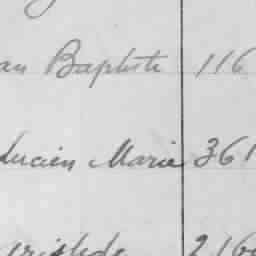 an Baptiste 116
Lucien Marie 361
Aristide 216